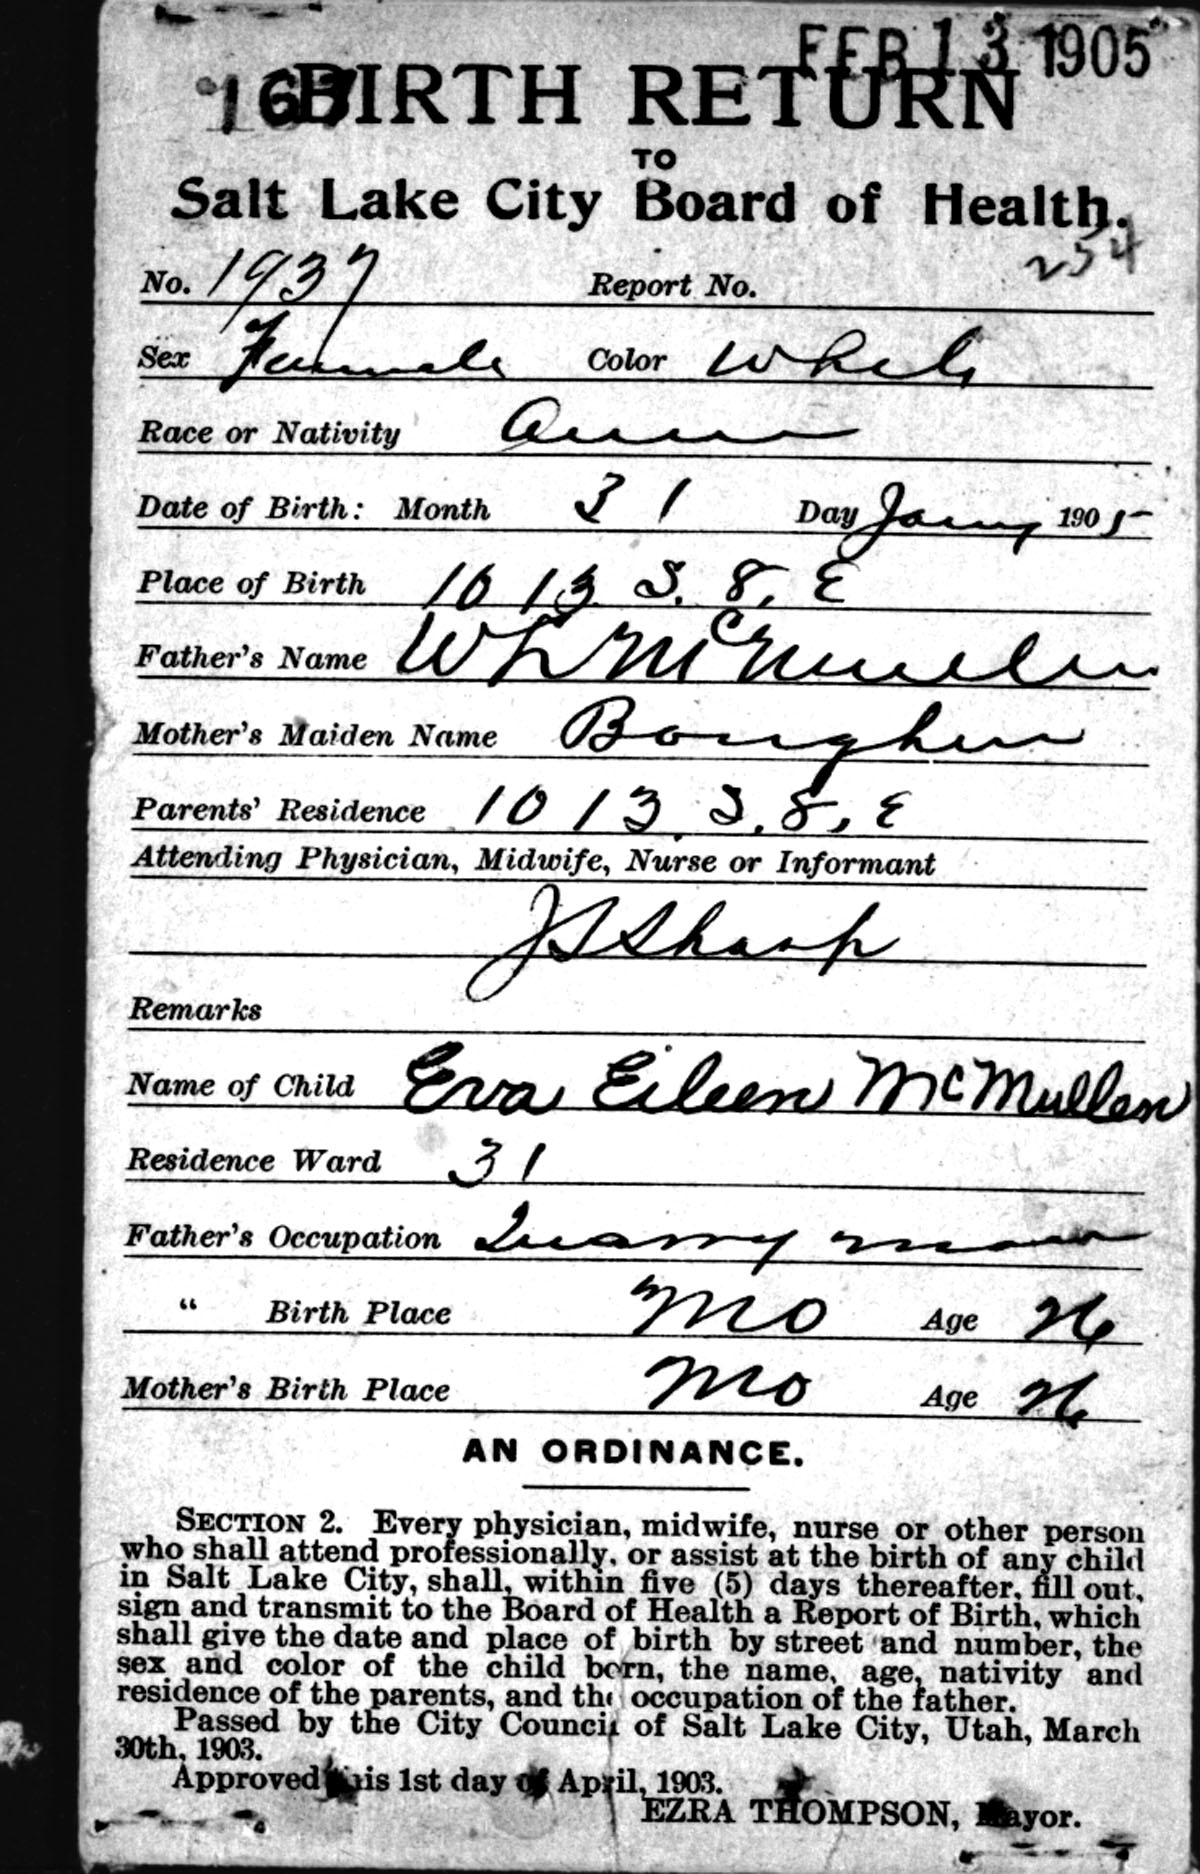 FEB 13 1905
167
BIRTH RETURN
TO
Salt Lake City Board of Health.
254
No. 1937 Report No.
Sex Female Color White
Race or Nativity Amer
Date of Birth: Month 31 Day Jany 1905
Place of Birth 1013 S. 8, E
Father's Name W L McMullen
Mother's Maiden Name
Parents' Residence 1013 S. 8, E
Attending Physician, Midwife, Nurse or Informant
Sharp
Remarks
Name of Child Eva Eileen McMullen
Residence Ward 31
Father's Occupation Quarry man
" Birth Place Mo Age 26
Mother's Birth Place Mo Age 26
AN ORDINANCE.
SECTION 2. Every physician, midwife, nurse or other person
who shall attend professionally, or assist at the birth of any child
in Salt Lake City, shall, within five (5) days thereafter, fill out,
sign and transmit to the Board of Health a Report of Birth, which
shall give the date and place of birth by street and number, the
sex and color of the child born, the name, age, nativity and
residence of the parents, and the occupation of the father.
Passed by the City Council of Salt Lake City, Utah, March
30th, 1903.
Approved this 1st day of April, 1903.
EZRA THOMPSON, Mayor.